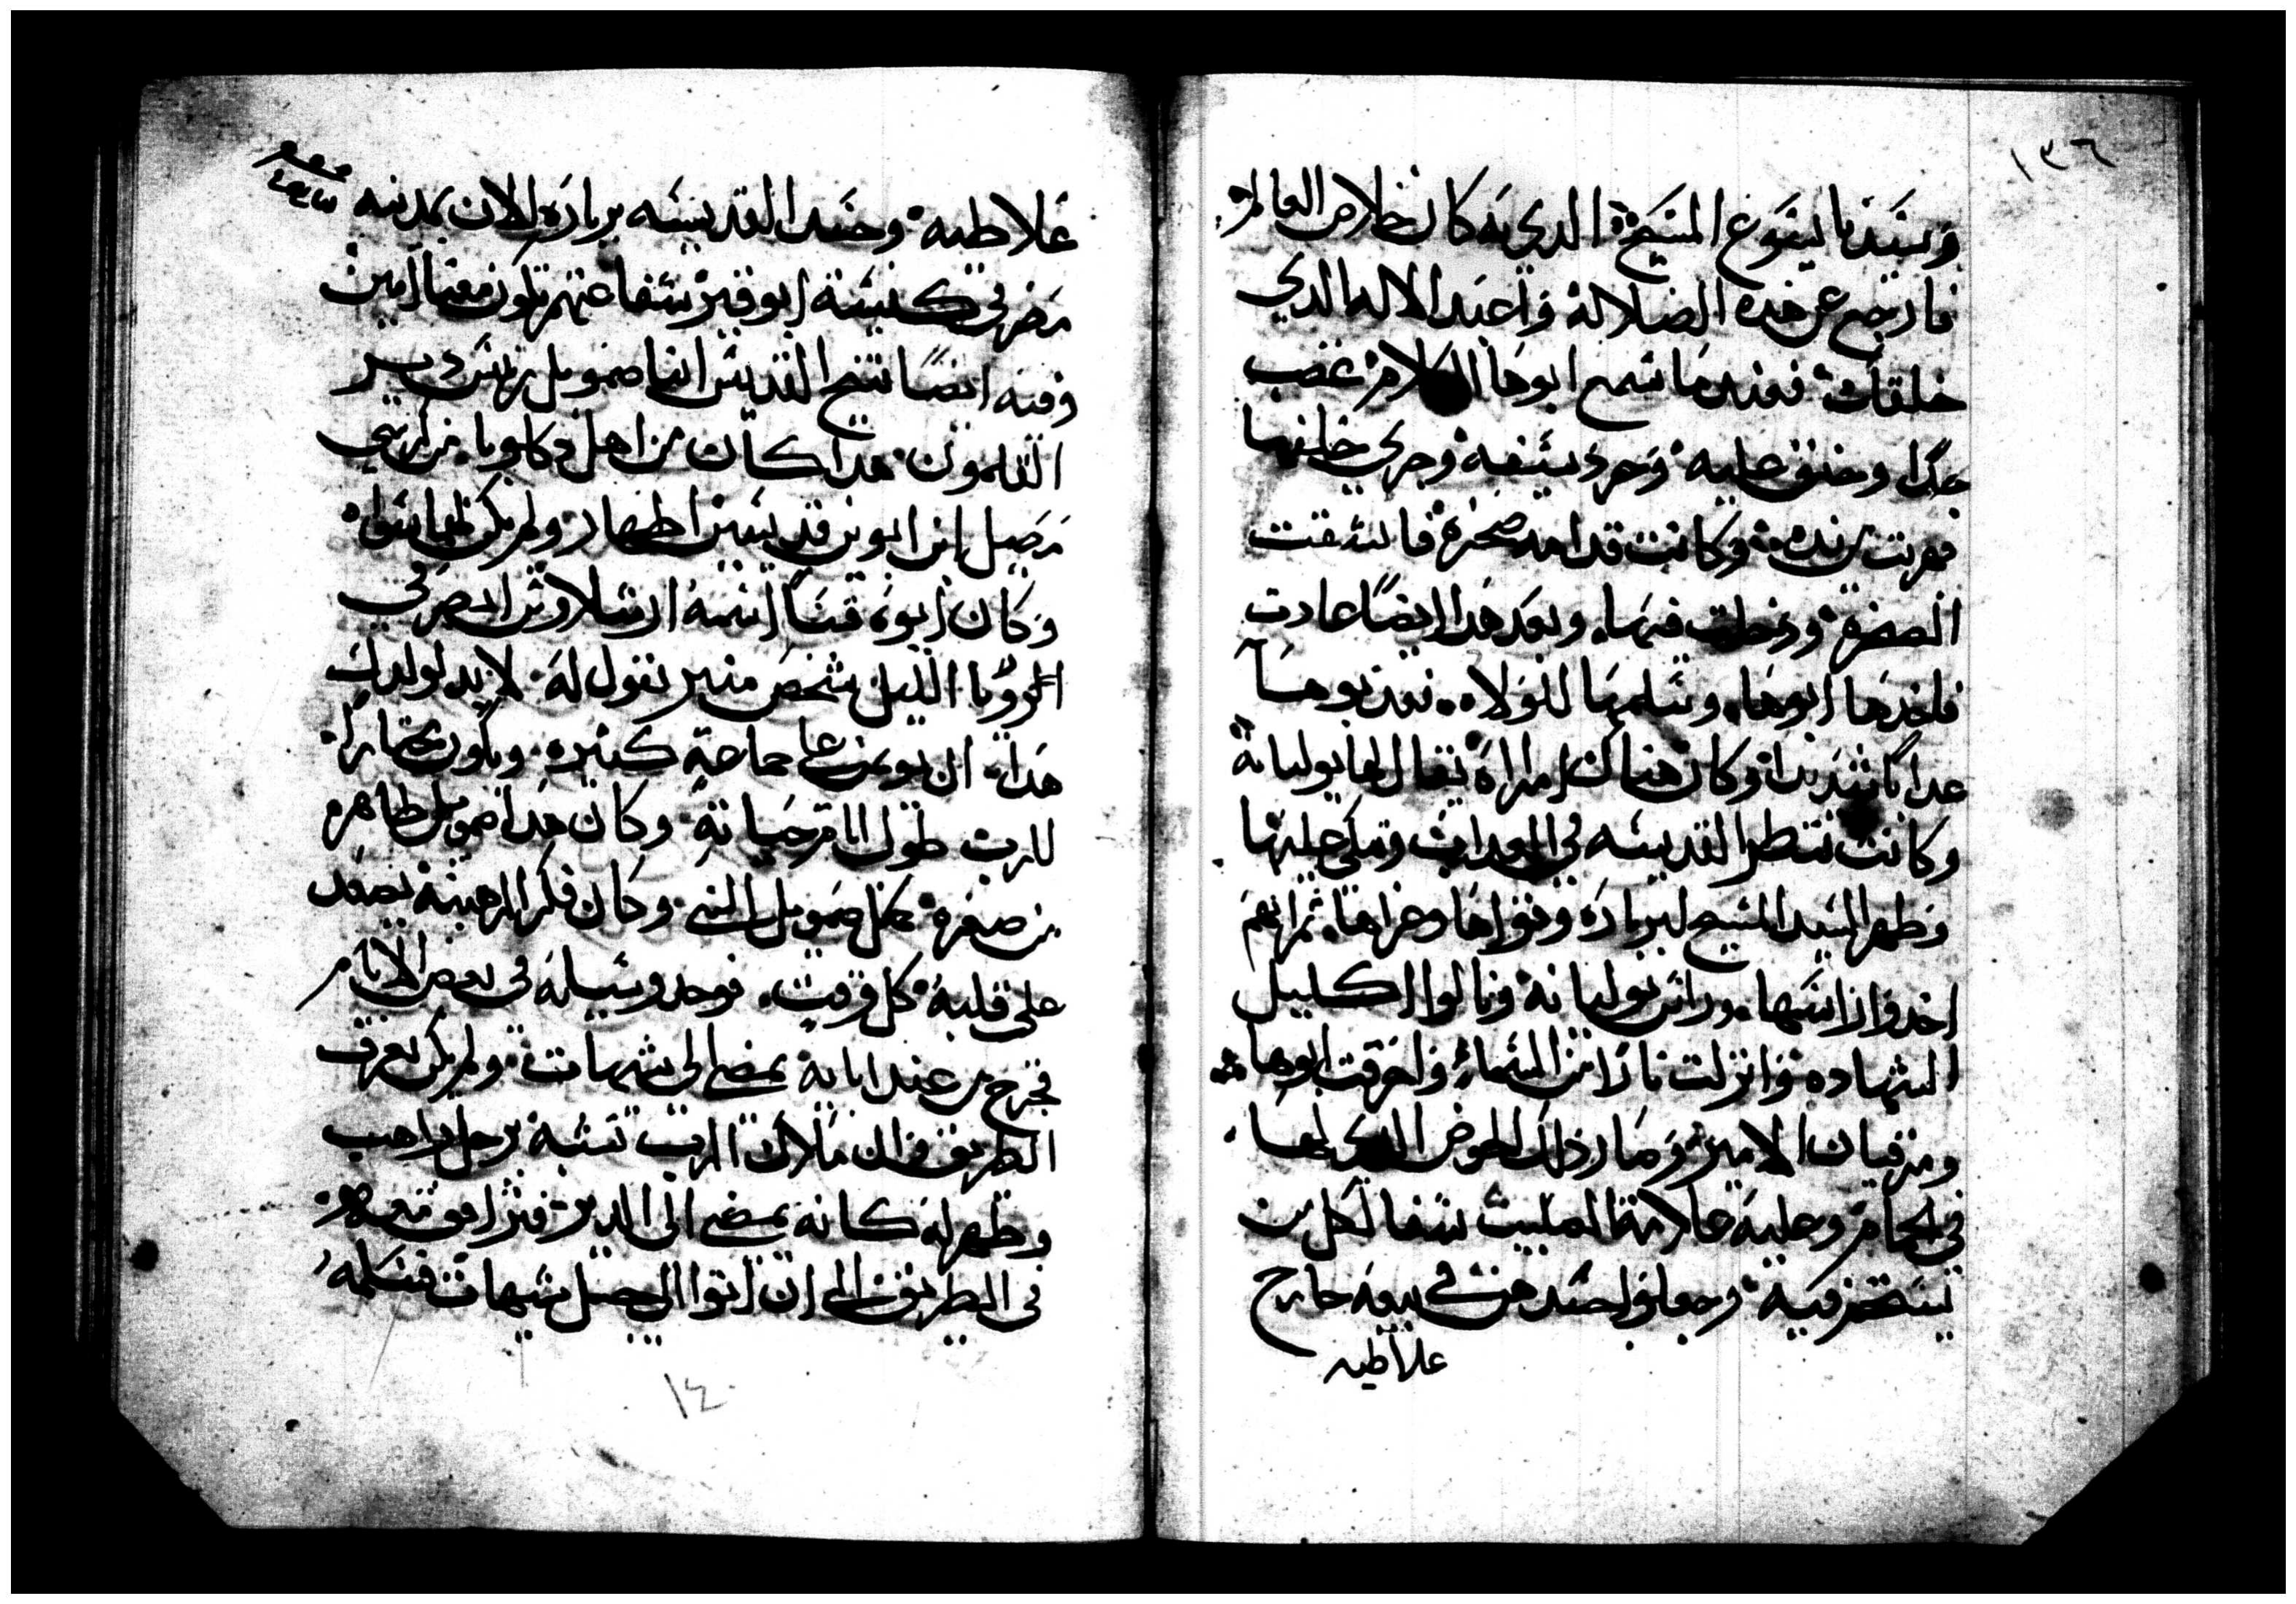 ١٣٦
وسيدنا يسوع المسيح الدي به كان خلاص العالم
فارجع عن هده الضلالة واعبد الاله الدي
خلقك فعندما سمع ابوها الكلام غضب
جدا وحنق عليه وجرد سيفه وجري خلفها
فهربت من يده وكانت قدامه صخرة فانشقت
الصخرة ودخلت فيها وبعد هدا ايضا عادت
فاخدها ابوها وسلمها للولاه فعدبوها
عدابا شديدا وكان هناك امراة يقال لها يوليانة
وكانت تنظر القديسه في العداب وتبكي عليها
وظهر السيد المسيح لبربارة وقواها وعزاها ثم انهم
اخدوا راسها وراس يوليانة ونالوا اكليل
الشهاده وانزلت نارا من السماء واحرقت ابوها
ومرقيان الامير وصار ذلك الحوض الدي لها
في الحمام وعليه علامة الصليب شفا لكل من
يستحم فيه وجعلوا جسدهن في بيعه خارج
غلاطيه
غلاطيه وجسد القديسه بربارة الان بمدينه
مصر في كنيسة ابوقير شفاعتهم تكون معنا امين
وفيه ايضا تنيح القديس انبا صمويل ريس دير
القلمون هدا كان من اهل دكلوبا من كرسي
مصيل من ابوين قديسين اطهار ولم يكن لهما سواه
وكان ابوه قسا اسمه ارسلاوس ابصر في
الرويا الليل شخص منير يقول له لابد لولدك
هدا ان يوتمن علي جماعة كثيره ويكون مختارا
للرب طول ايام حياته وكان هدا صمويل طاهره
من صغره مثل صمويل النبي وكان فكر الرهبنة يصعد
علي قلبه كل وقت فوجد وسيلة في بعض الايام
فخرج من عند ابايه يمضي الي شيهات ولم يكن يعرف
الطريق فان ملاك الرب تشبه برجل راهب
وظهر له كانه يمضي الي الدير فترافق معه
في الطريق الي ان اتوا الي جبل شيهات فسلمه
١٤٠